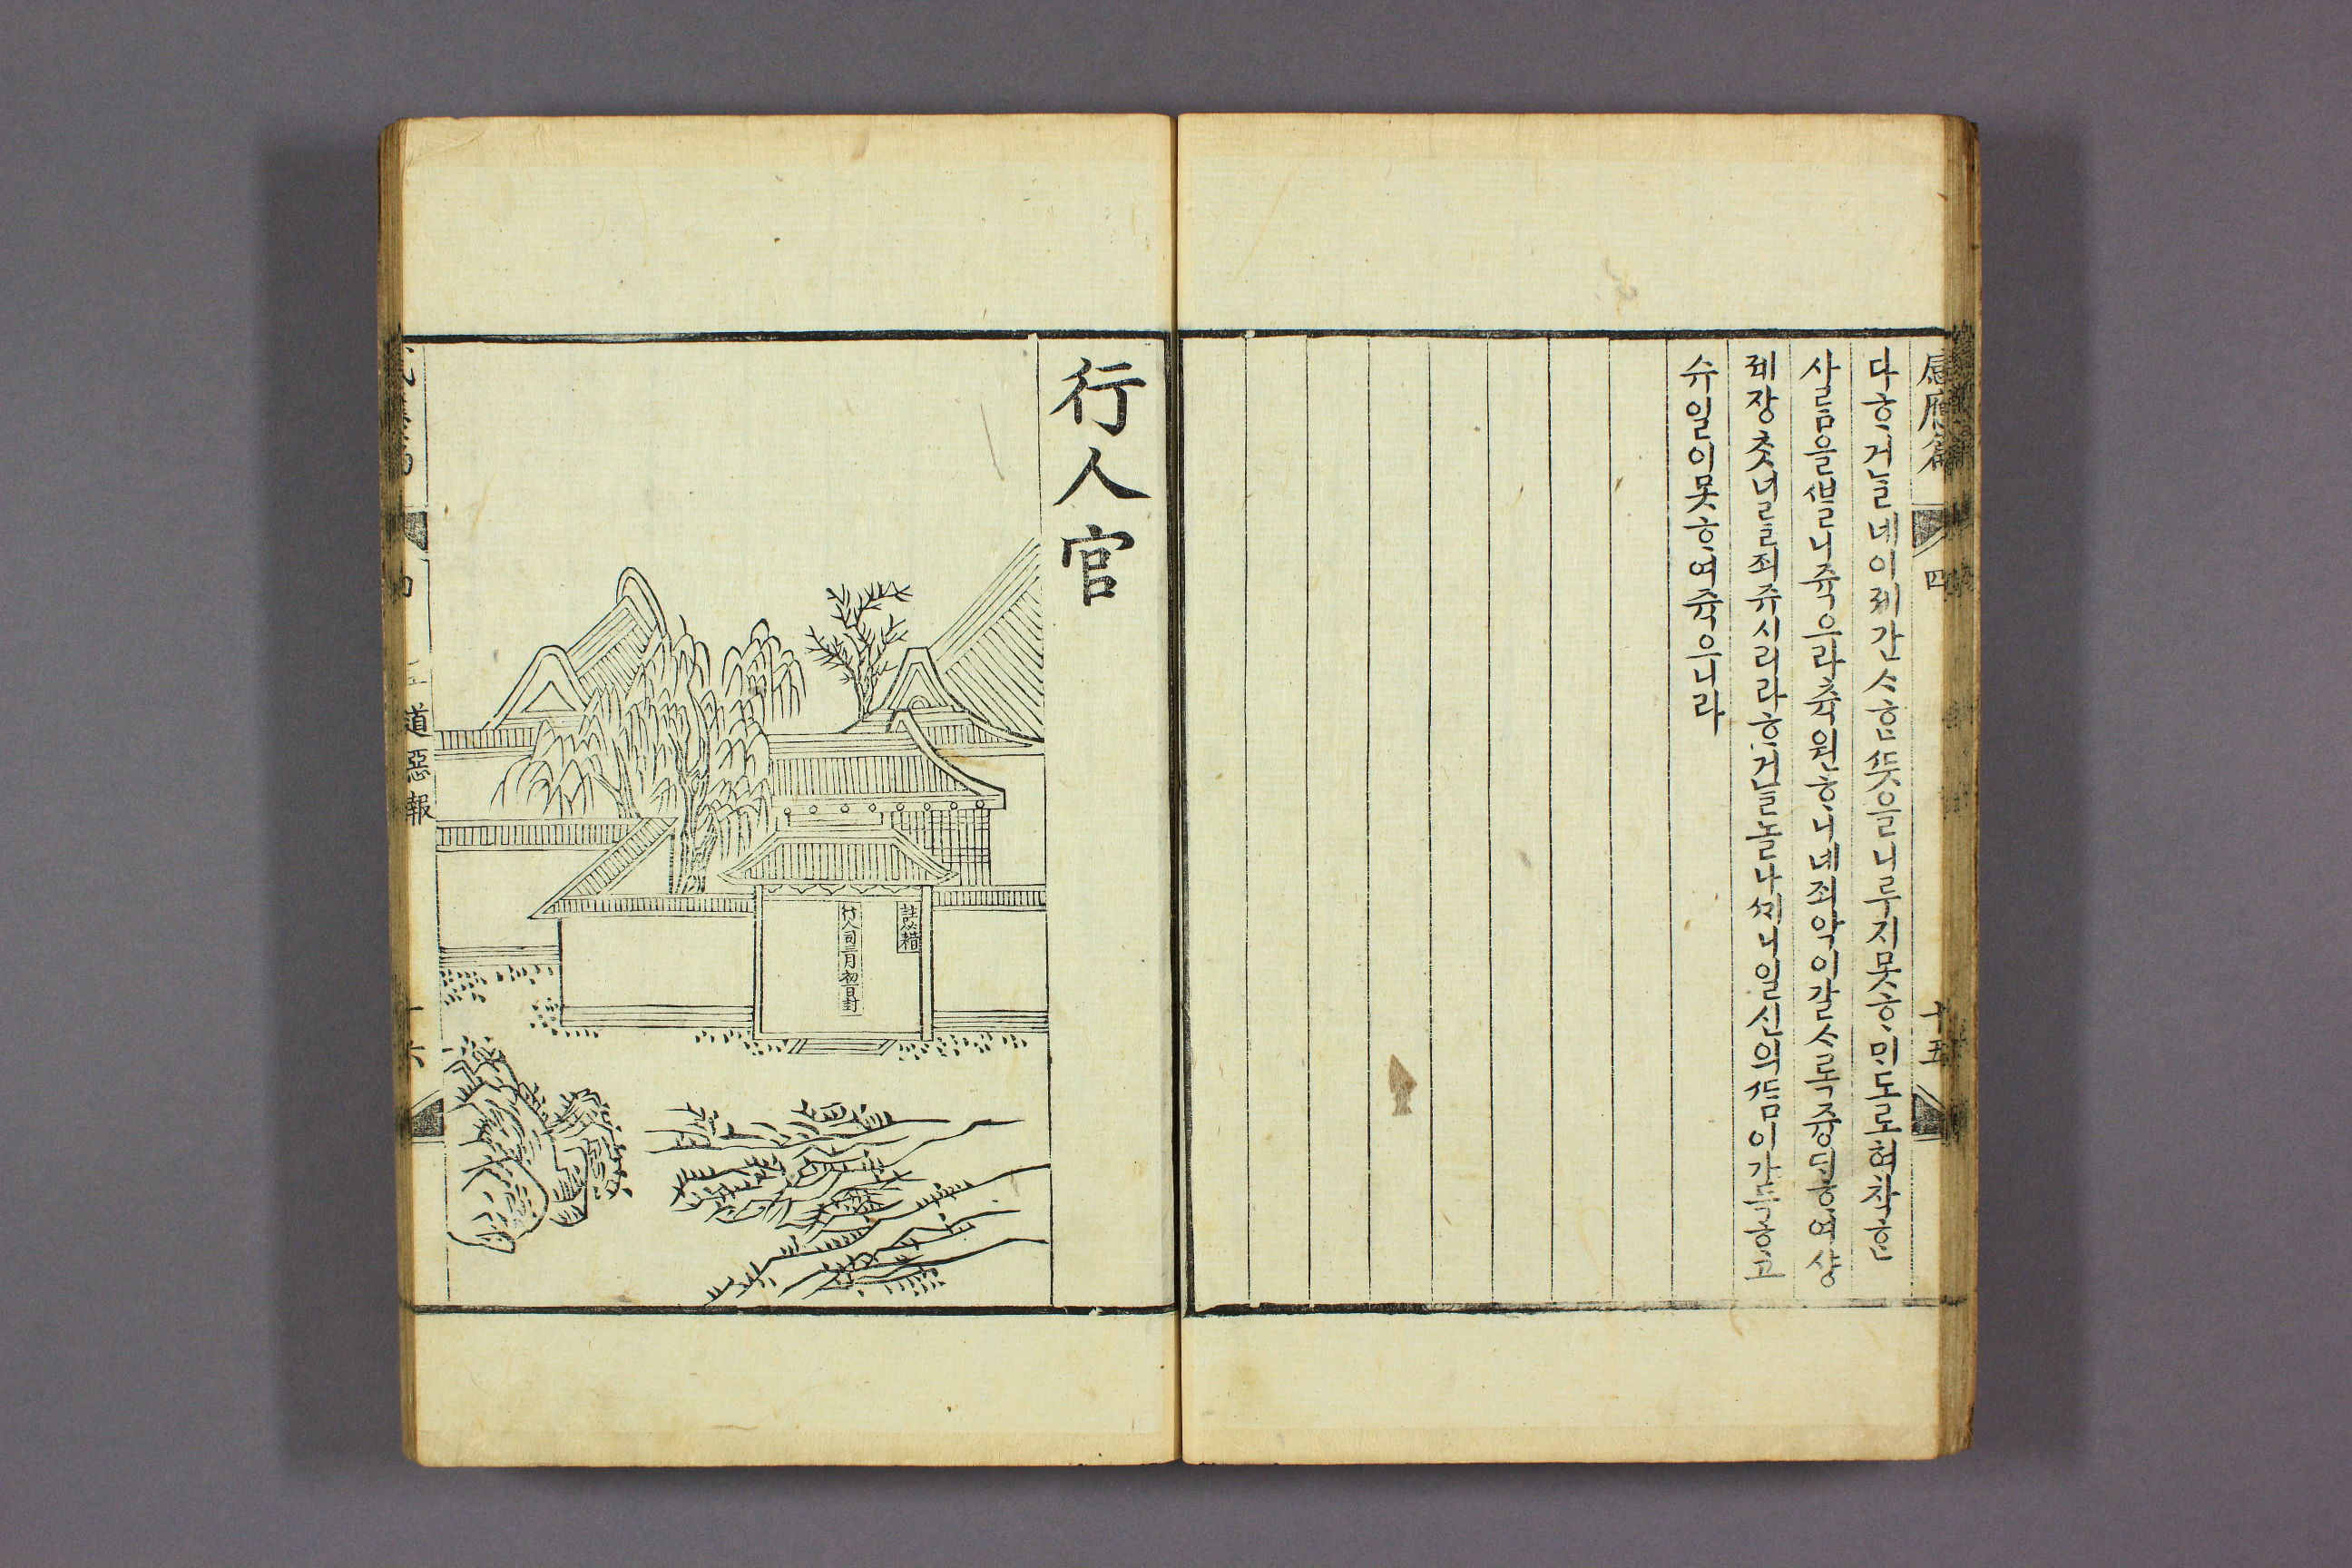 感應篇 四 十五
다ᄒᆞ거늘 네 이제 간ᄉᆞᄒᆞᆫ ᄯᅳᆺ을 니ᄅᆞ지 못ᄒᆞ미 도로혀 착ᄒᆞᆫ
사ᄅᆞᆷ을 ᄲᆞᆯ니 쥭으라 츅원ᄒᆞ니 네 죄악이 갈ᄉᆞ록 즁ᄃᆡᄒᆞ여 상
졔 장ᄎᆞᆺ 너ᄅᆞᆯ 죄 쥬시리라 ᄒᆞ거ᄂᆞᆯ 놀나 ᄭᆡ니 일신의 ᄯᆞᆷ이 가득ᄒᆞ고
슈일이 못ᄒᆞ여 쥭으니라
行人官
註必精
行人司三月初一日封
道惡報
十六